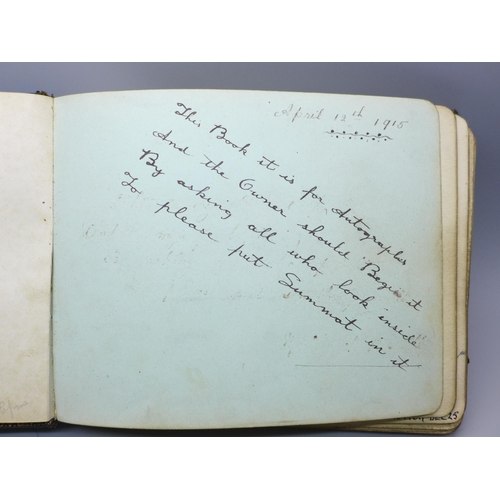 April 12th 1915
This Book it is for Autographs
And the Owner should Begin it
By asking all who look inside
To please put Summat in it
25